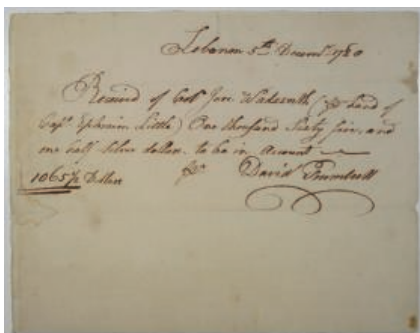 Lebanon 5th Decemr. 1780
Received of Colo Jere. Wadsworth (pr hand of
Capt. Ephraim Little) One thousand Sixty five, and
one half Silver dollars, to be in Account
1065½ Dollars pr David Trumbull